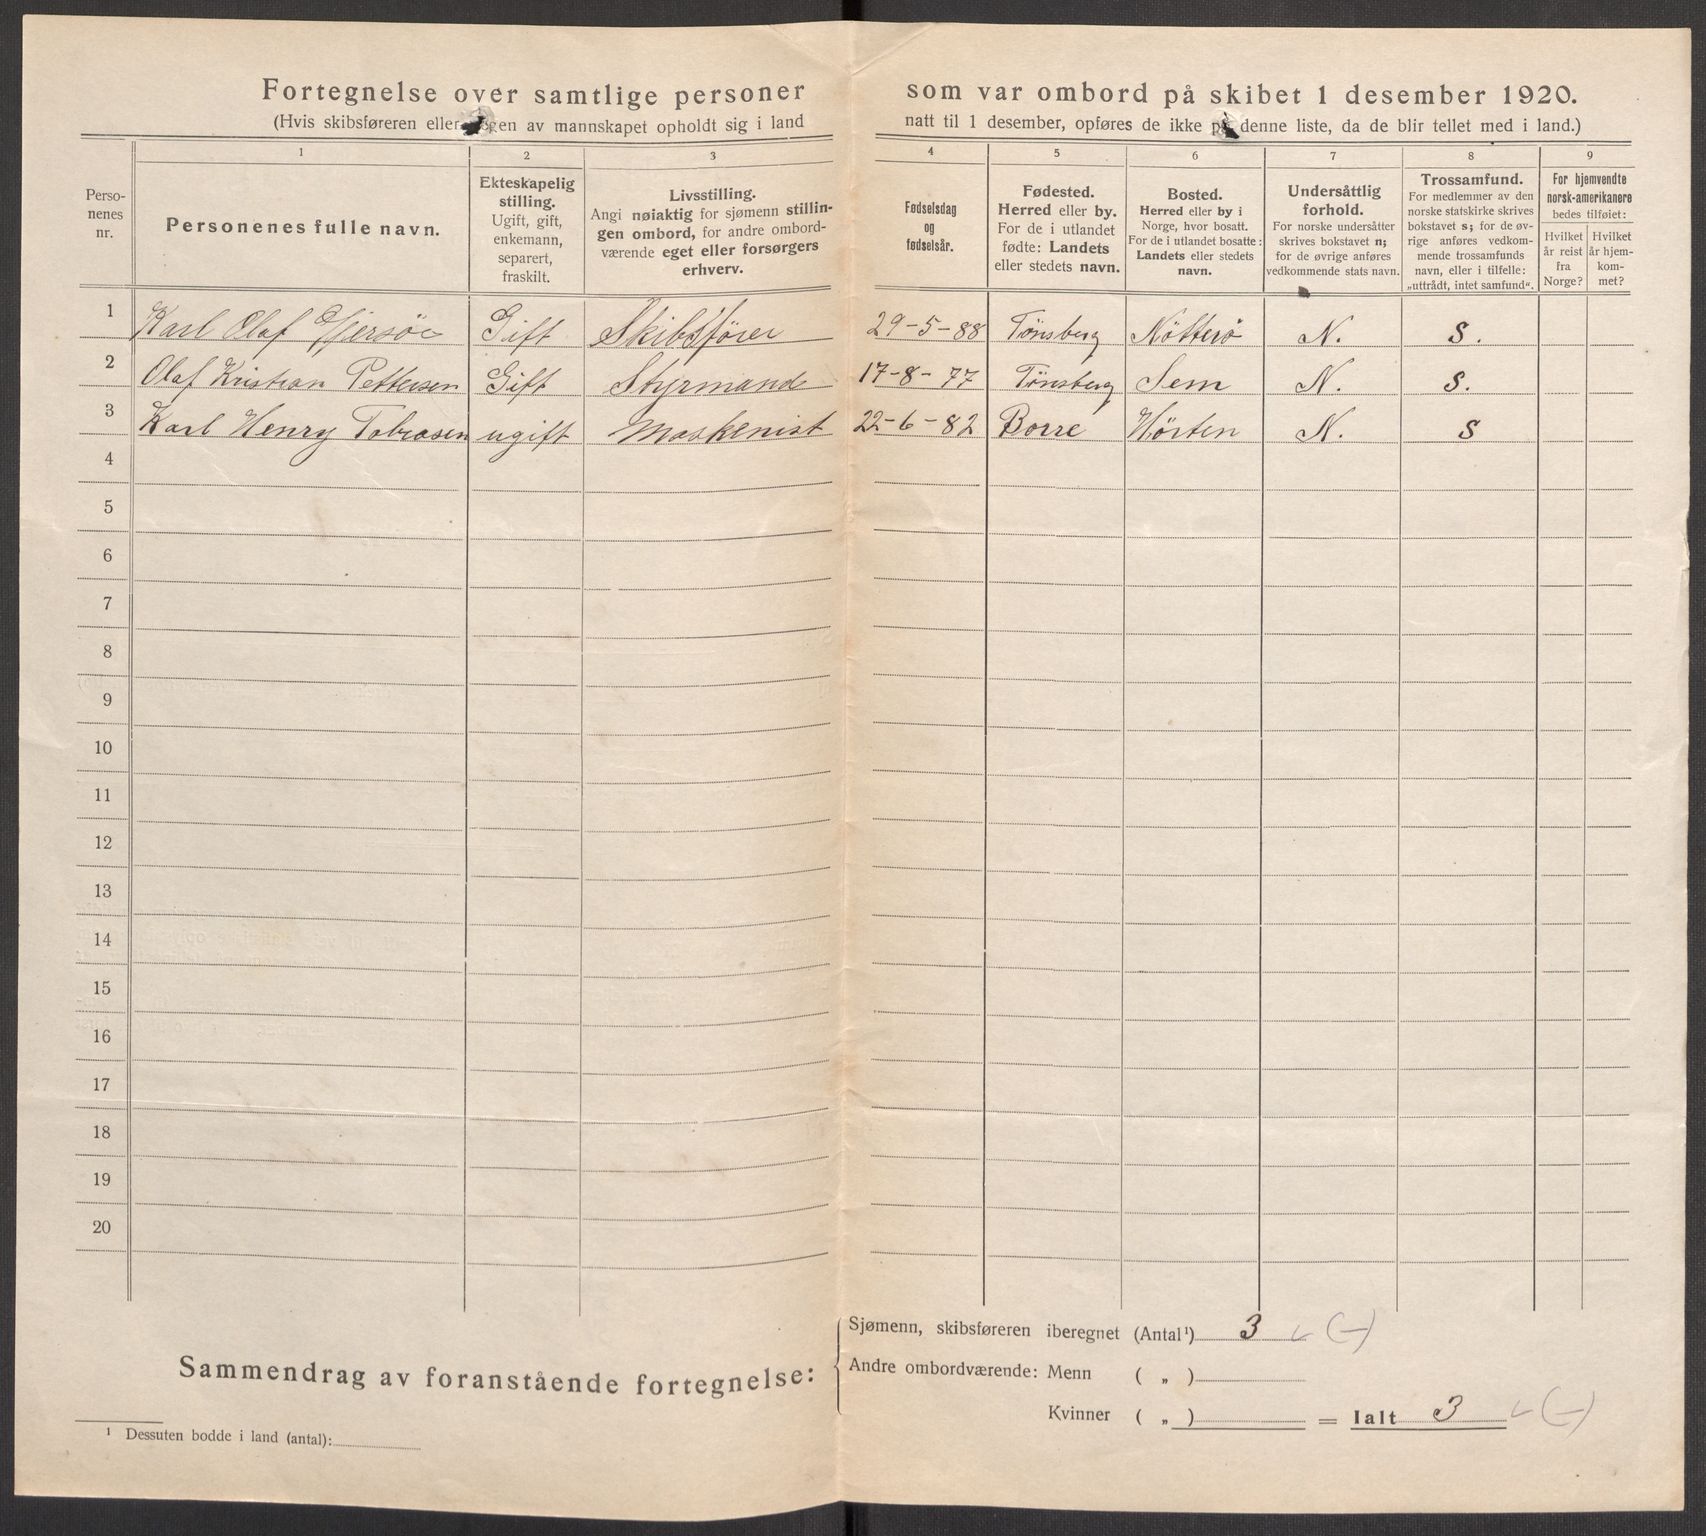 Fortegnelse over samtlige personer som var ombord på skibet 1 desember 1920.
(Hvis skibsføreren eller nogen av mannskapet opholdt sig i land natt til 1 desember, opføres de ikke på denne liste, da de blir tellet med i land.)
1 2 3 4 5 6 7 8 9
Perso-
nenes
nr.
Personenes fulle navn.
Ekteskapelig
stilling.
Ugift, gift,
enkemann,
separert,
fraskilt.
Livsstilling.
Angi nøiaktig for sjømenn stillin-
gen ombord, for andre ombord-
værende eget eller forsørgers
erhverv.
Fødselsdag
og
fødselsår.
Fødested.
Herred eller by.
For de i utlandet
fødte: Landets
eller stedets navn.
Bosted.
Herred eller by i
Norge, hvor bosatt.
For de i utlandet bosatte:
Landets eller stedets
navn.
Undersåttlig
forhold.
For norske undersåtter
skrives bokstavet n;
for de øvrige anføres
vedkommende stats navn.
Trossamfund.
For medlemmer av den
norske statskirke skrives
bokstavet s; for de øv-
rige anføres vedkom-
mende trossamfunds
navn, eller i tilfelle:
„uttrådt, intet samfund“.
For hjemvendte
norsk-amerikanere
bedes tilføiet:
Hvilket
år reist
fra
Norge?
Hvilket
år hjem-
kom-
met?
1 Karl Olaf Gjersøe Gift Skibsfører 29-5-88 Tønsberg Nötterö N. S.
2 Olaf Kristian Pettersen Gift Styrmand 17-8-77 Tønsberg Sem N. S.
3 Karl Henry Tobiasen ugift Maskenist 22-6-82 Borre Hörten N. S
4
5
6
7
8
9
10
11
12
13
14
15
16
17
18
19
20
Sammendrag av foranstående fortegnelse:
Sjømenn, skibsføreren iberegnet (Antal¹) 3 (-)
Andre ombordværende: Menn ( „ )
Kvinner ( „ ) = Ialt 3 (-)
¹ Dessuten bodde i land (antal):